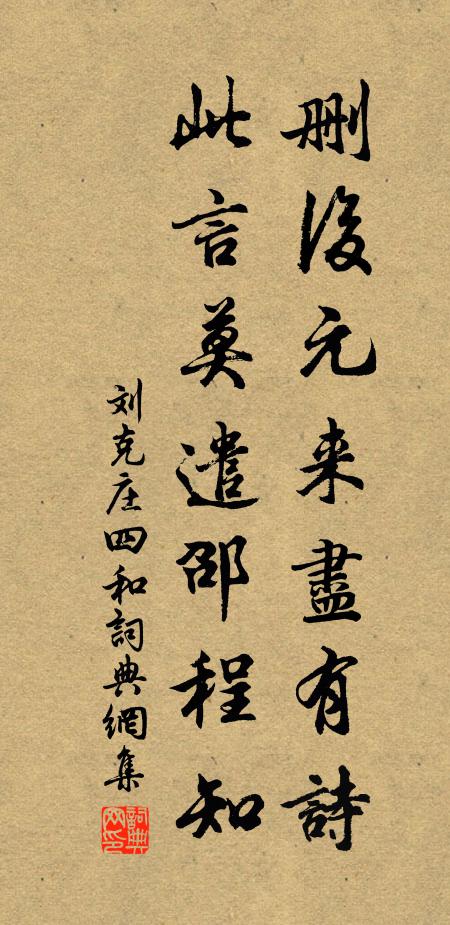 刪後元来盡有詩
此言莫遣邵程知
刘克庄四和詞典網集
詞典网印